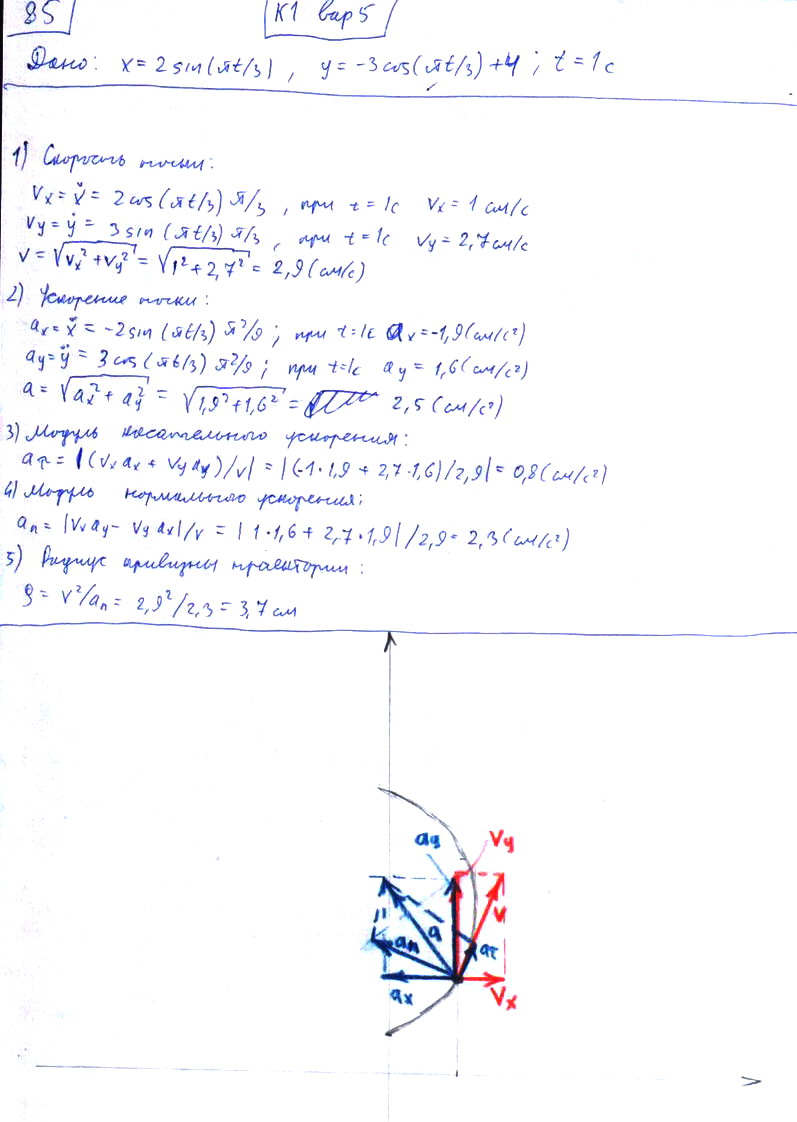 85
К1 вар 5
Дано: x = 2 sin(πt/3), y = -3 cos(πt/3) + 4; t = 1 с
1) Скорость точки:
Vx = ẋ = 2 cos(πt/3) π/3, при t = 1с Vx = 1 см/с
Vy = ẏ = 3 sin(πt/3) π/3, при t = 1с Vy = 2,7 см/с
V = √(Vx² + Vy²) = √(1² + 2,7²) = 2,9 (см/с)
2) Ускорение точки:
ax = ẍ = -2 sin(πt/3) π²/9; при t = 1с ax = -1,9 (см/с²)
ay = ÿ = 3 cos(πt/3) π²/9; при t = 1с ay = 1,6 (см/с²)
a = √(ax² + ay²) = √(1,9² + 1,6²) = 2,5 (см/с²)
3) Модуль касательного ускорения:
aτ = |(Vx ax + Vy ay)/V| = |(-1·1,9 + 2,7·1,6)/2,9| = 0,8 (см/с²)
4) Модуль нормального ускорения:
an = |Vx ay - Vy ax|/V = |1·1,6 + 2,7·1,9|/2,9 = 2,3 (см/с²)
5) Радиус кривизны траектории:
ρ = V²/an = 2,9²/2,3 = 3,7 см
ay
Vy
V
a
an
aτ
ax
Vx